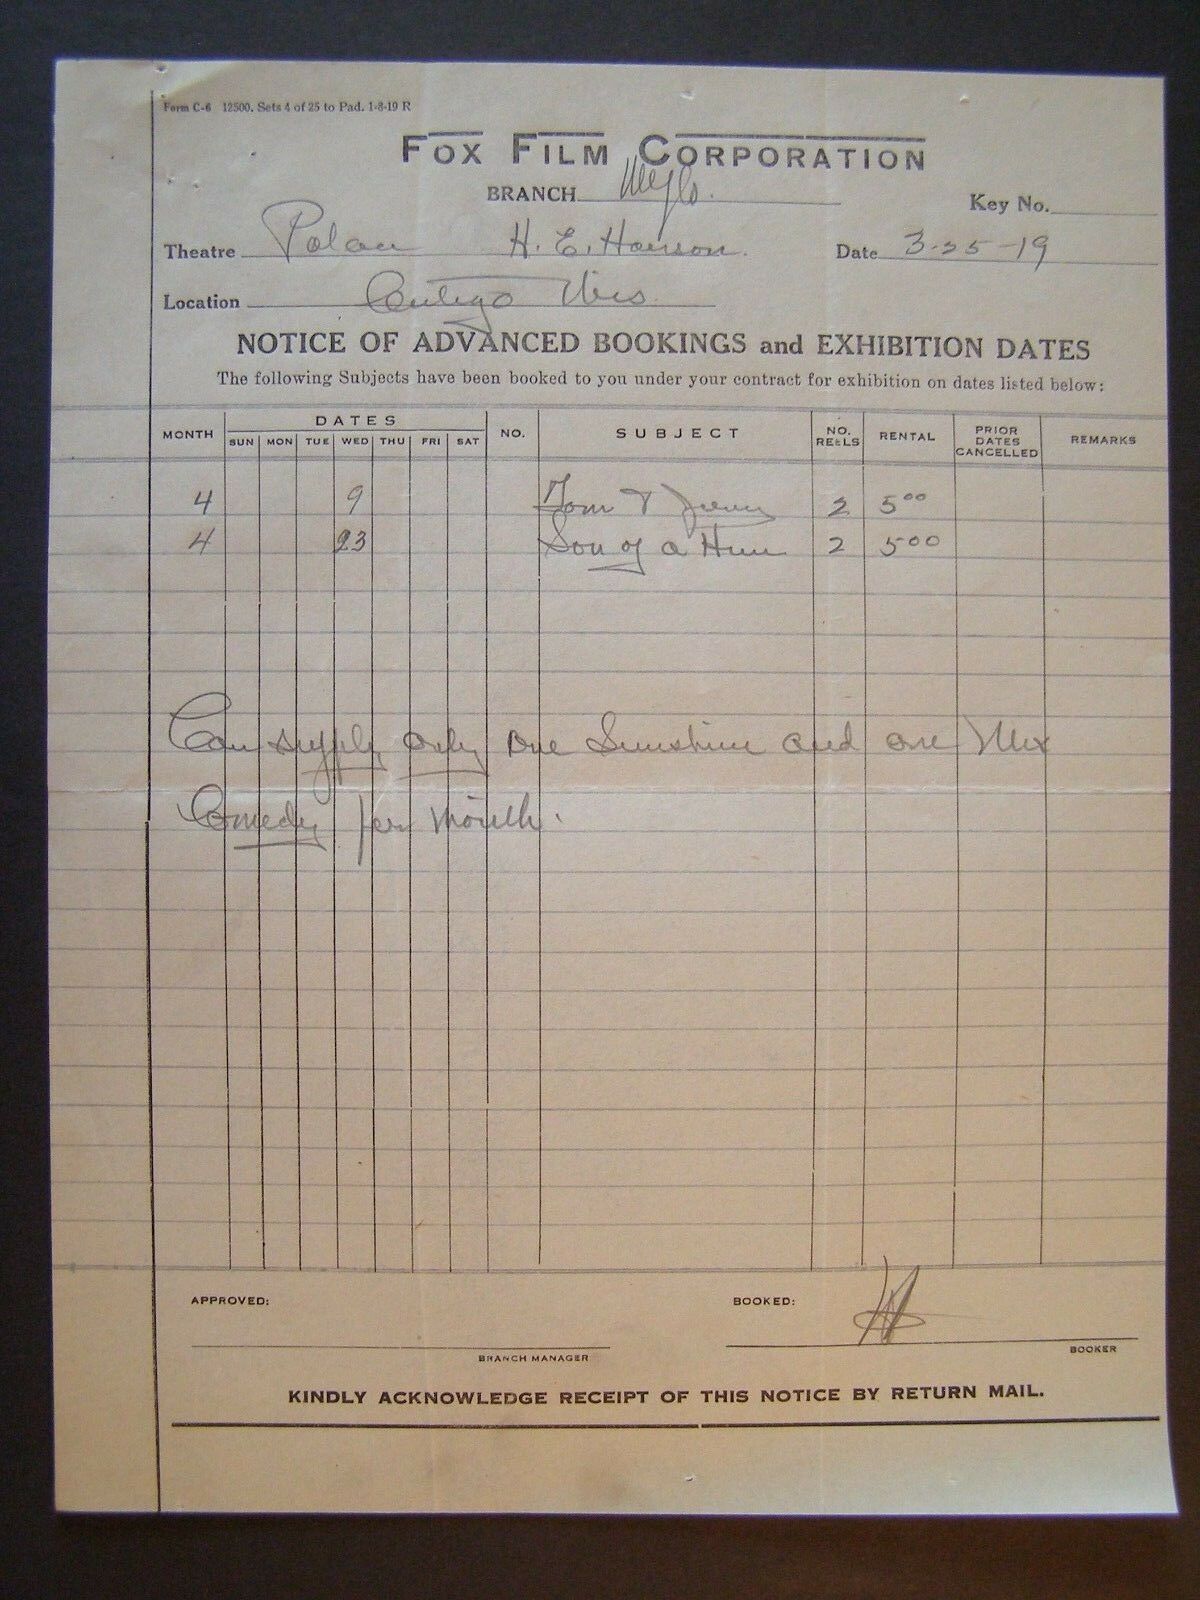 Form C-6 12500, Sets 4 of 25 to Pad. 1-8-19 R
FOX FILM CORPORATION
BRANCH
Key No.
Theatre Palace H. E. Hanson. Date 3-25-19
Location Antigo Wis.
NOTICE OF ADVANCED BOOKINGS and EXHIBITION DATES
The following Subjects have been booked to you under your contract for exhibition on dates listed below:
MONTH DATES NO. SUBJECT NO. REELS RENTAL PRIOR DATES CANCELLED REMARKS
SUN MON TUE WED THU FRI SAT
4 9 Tom & Jerry 2 5 00
4 23 Son of a Hun 2 5 00
Can supply only one Sunshine and one Mix
Comedy per month.
APPROVED: BOOKED:
BRANCH MANAGER BOOKER
KINDLY ACKNOWLEDGE RECEIPT OF THIS NOTICE BY RETURN MAIL.